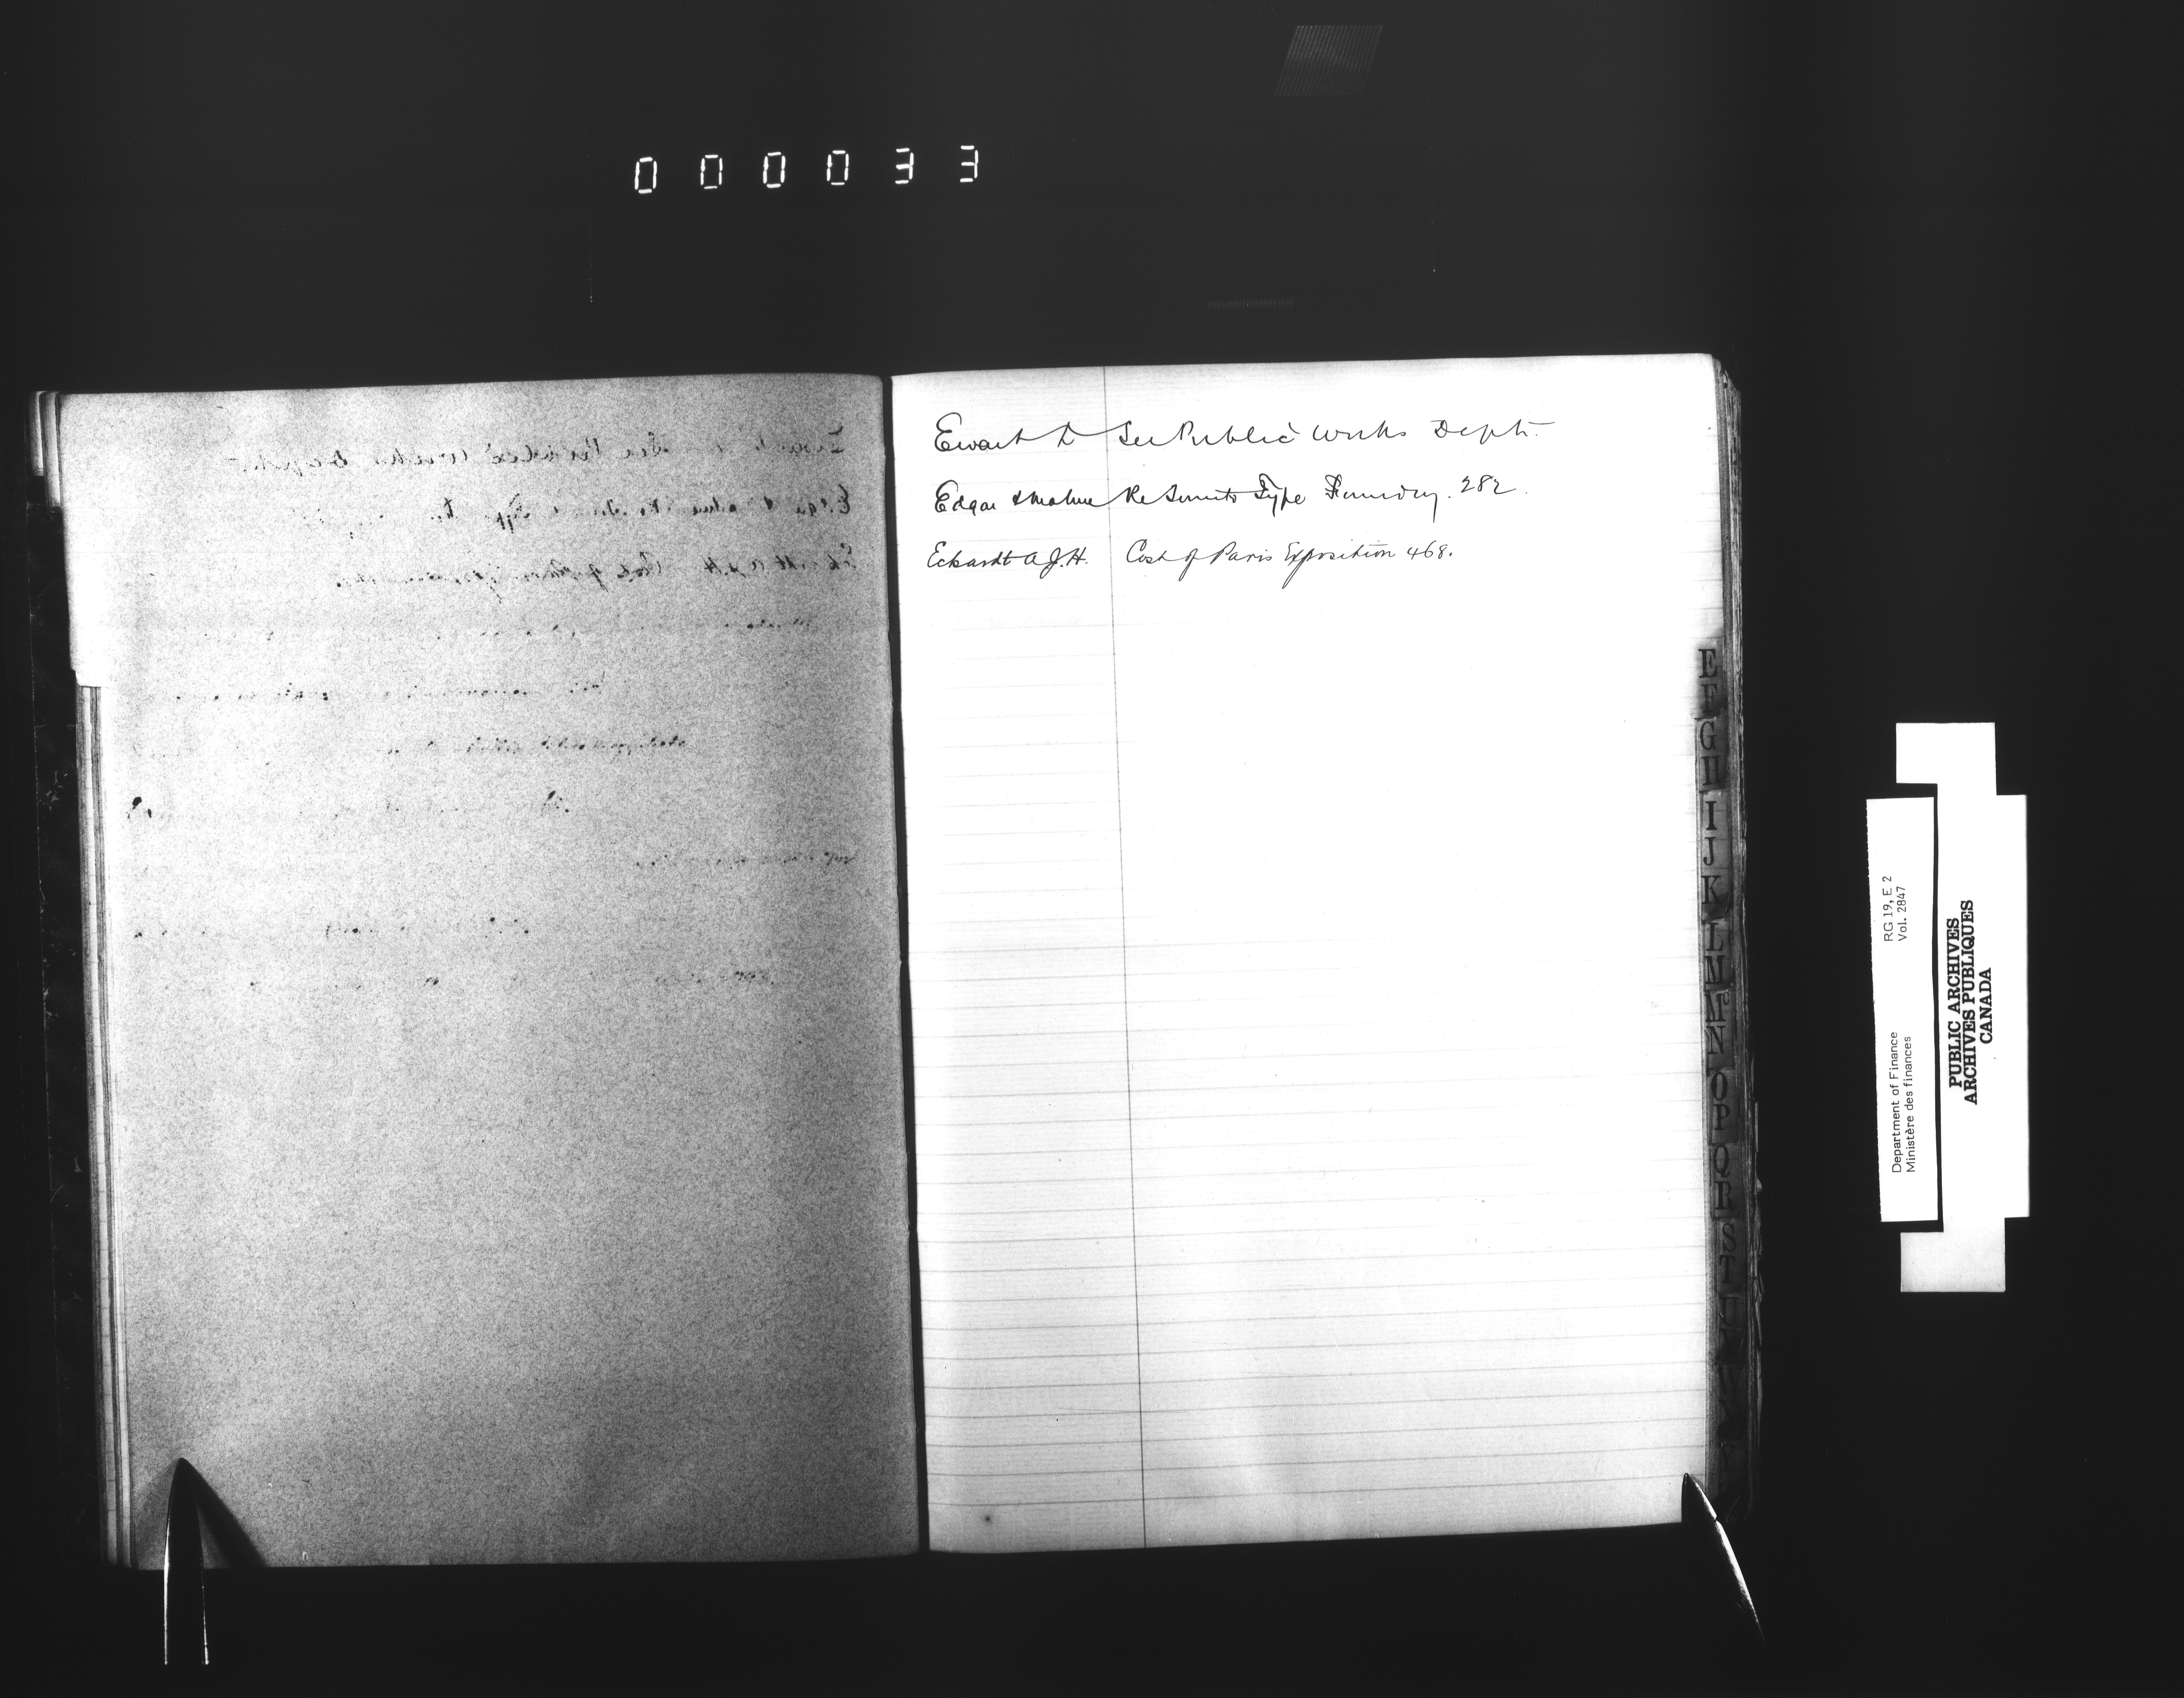 000033
Ewart D See Public Works Dept.
Edgar & Malone Re Toronto Type Foundry. 282.
Eckardt A.J.H. Cost of Paris Exposition 468.
E
F
G
H
I
J
K
L
M
Mc
N
O
P
Q
R
S
T
U
V
W
Y
RG 19, E 2
Vol. 2847
Department of Finance
Ministère des finances
PUBLIC ARCHIVES
ARCHIVES PUBLIQUES
CANADA